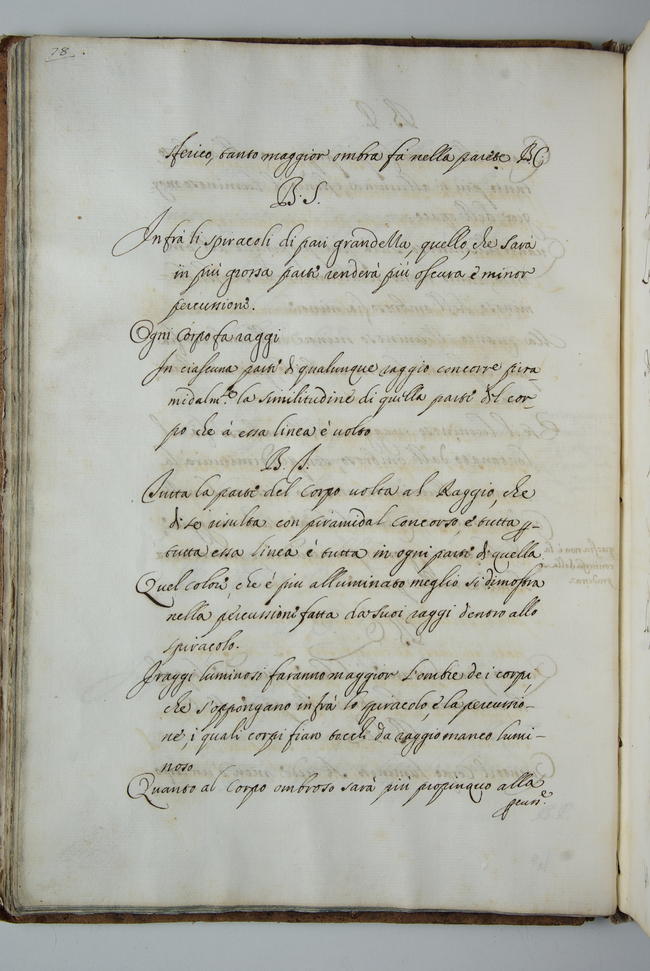 78
sferico, tanto maggior ombra fá nella parete B.C.
B. S.
Infrà li spiracoli di pari grandezza, quello, che sarà
in più grossa parte renderà più oscura è minor
percussione.
Ogni Corpo fa raggi
In ciascuna parte di qualunque raggio concorre pira-
midalm.te la similitudine di quella parte del cor-
po che à essa linea è volto
B. S.
Tutta la parte del Corpo volta al Raggio, che
di se risulta con piramidal concorso, è tutta p-
tutta essa linea è tutta in ogni parte di quella
Quel colore, che è piu alluminato meglio si dimostra
nella percussione fatta da suoi raggi dentro allo
spiracolo.
I raggi luminosi faranno maggior l'ombre de i corpi,
che s'oppongano infrà lo spiracolo, è la percussio-
ne, i quali corpi fian tocchi da raggio manco lumi-
noso
Quanto al Corpo ombroso sarà piu propinquo alla